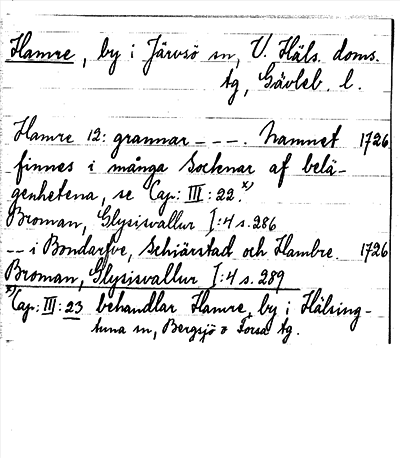 Hamre, by i Järvsö sn, V. Häls. doms.
tg, Gävleb. l.
Hamre 12: grannar - - -. Namnet 1726
finnes i många Socknar af belä-
genhetena, se Cap: III: 22.x)
Broman, Glysisvallur I:4 s. 286
-- i Bondarfve, Schiärstad och Hambre. 1726
Broman, Glysisvallur I:4 s. 289
x) Cap: III: 23 behandlar Hamre, by i Hälsing-
tuna sn, Bergsjö o Forsa tg.